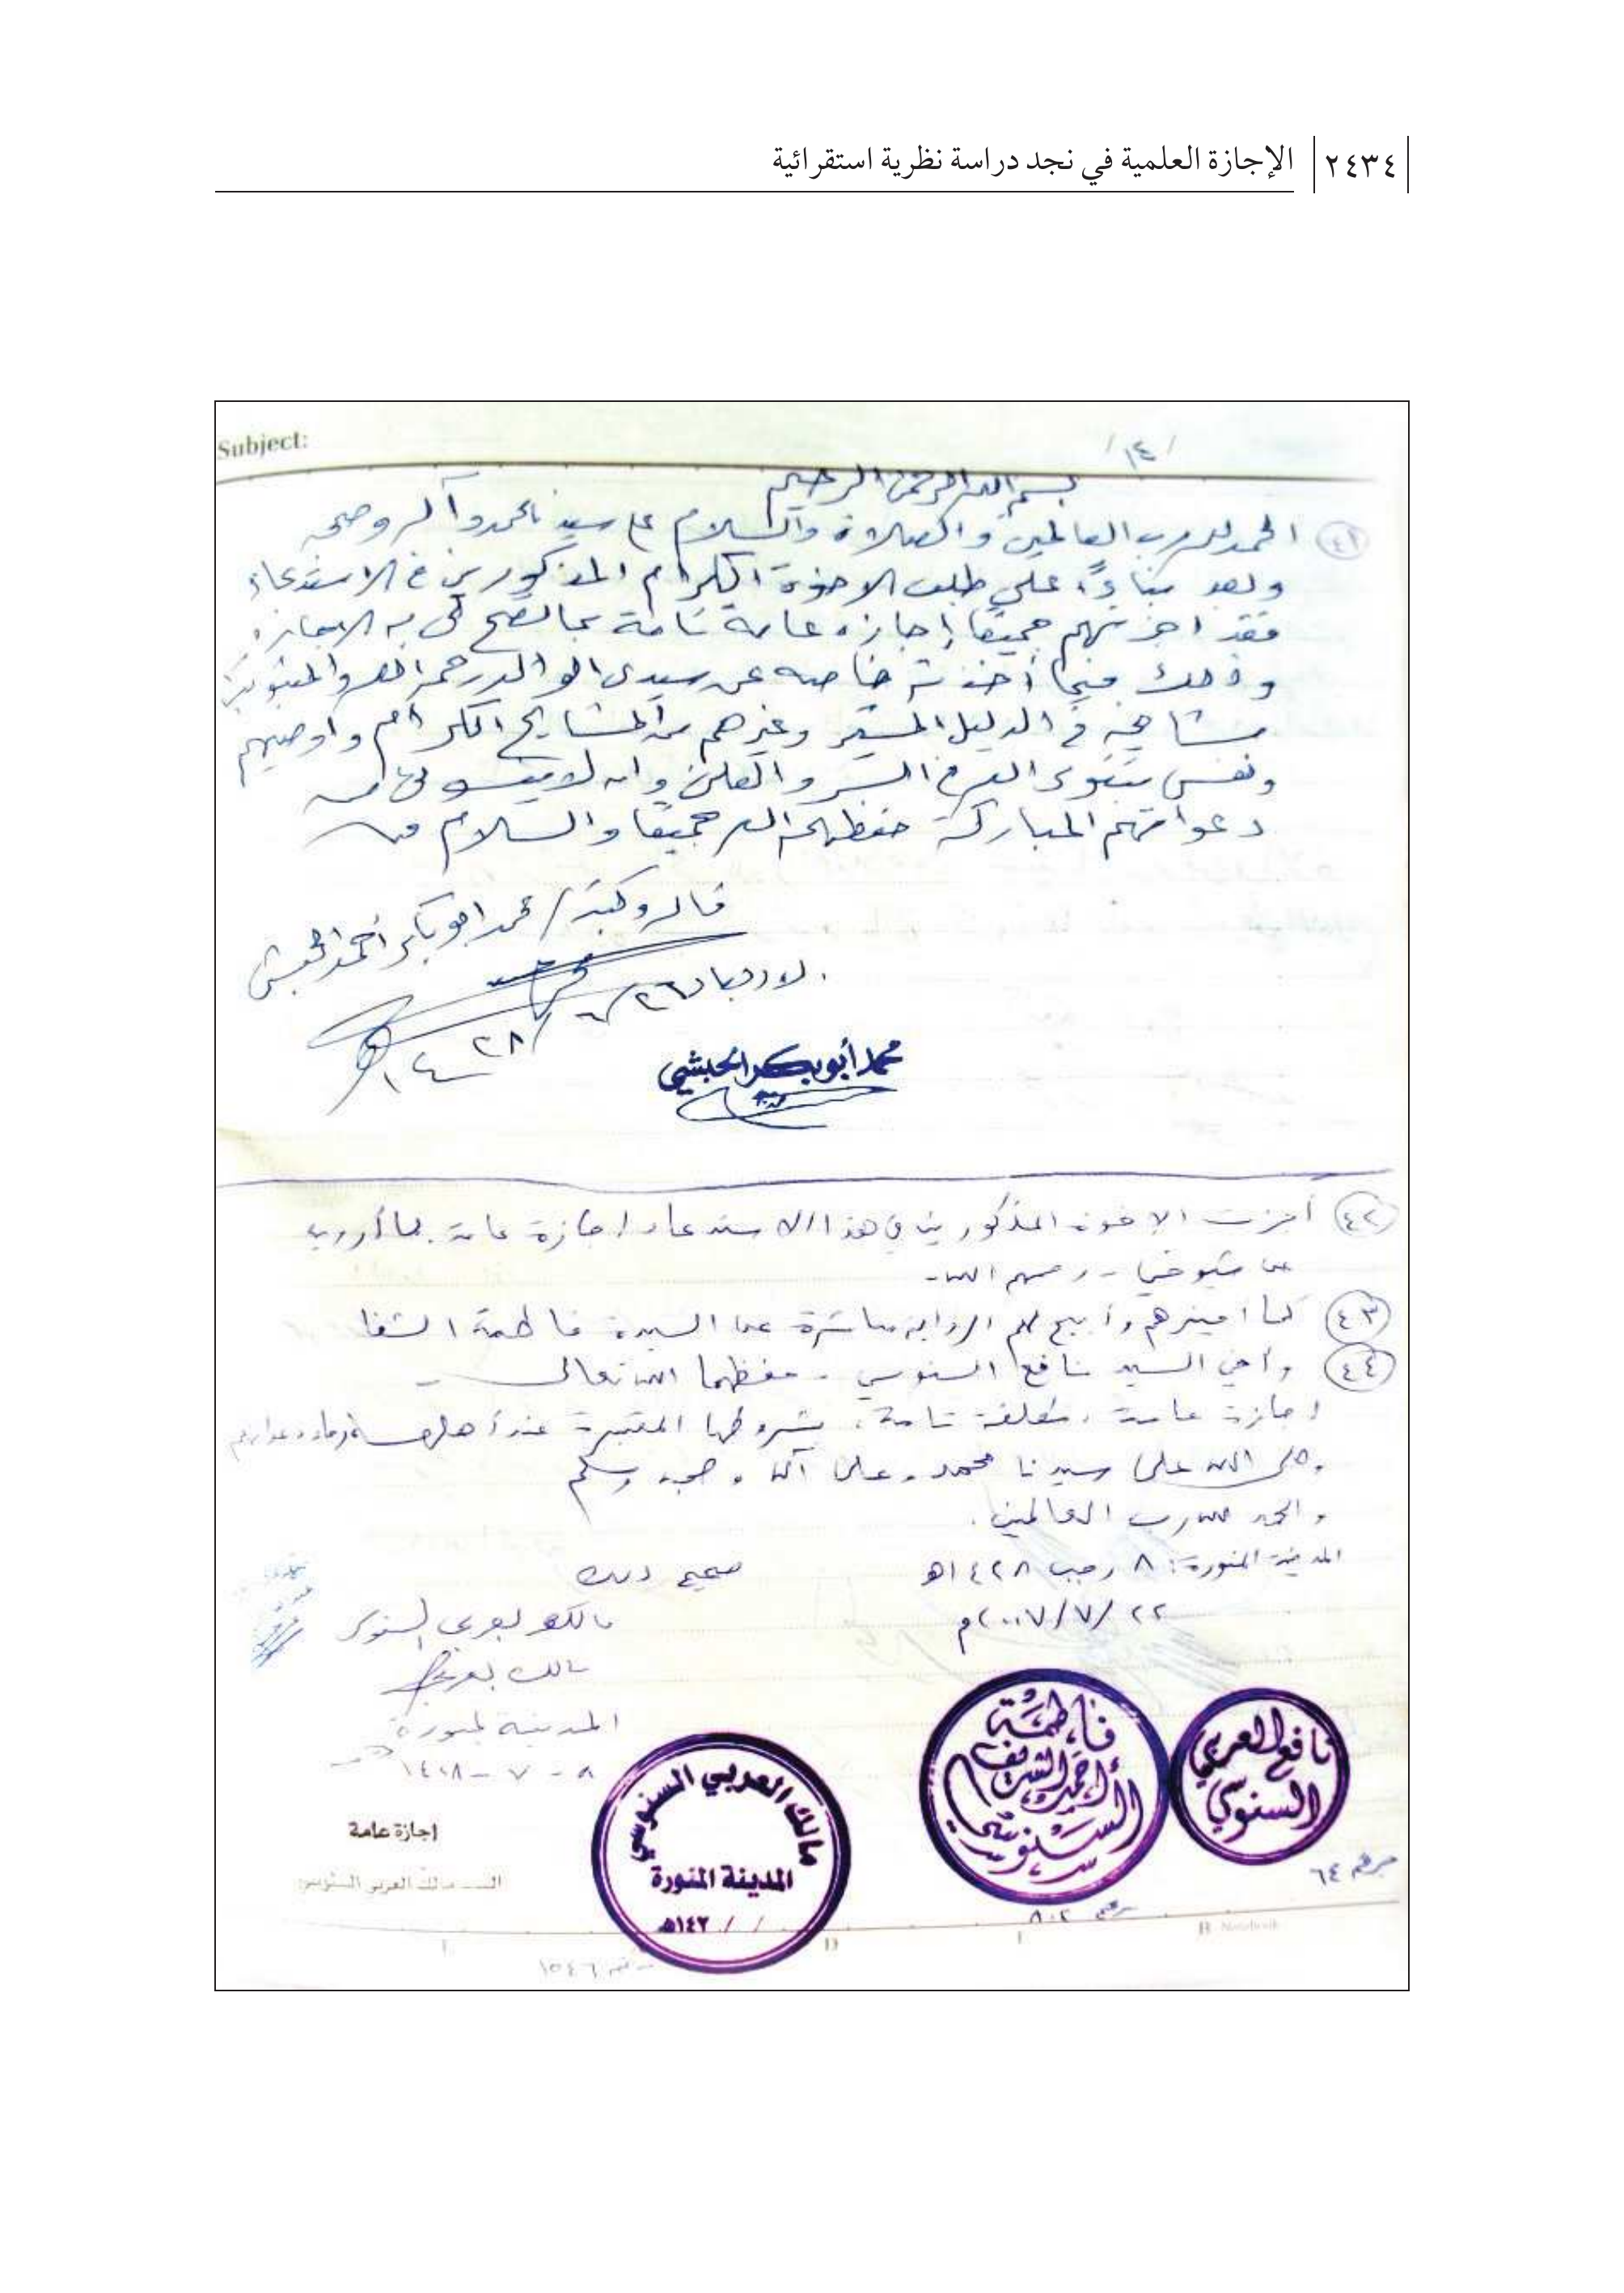 ٢٤٣٤ الإجازة العلمية في نجد دراسة نظرية استقرائية
Subject:
/ ١٤ /
بسم الله الرحمن الرحيم
٤١ الحمد لله رب العالمين والصلاة والسلام على سيدنا محمد وآله وصحبه
وبعد بناءً على طلب الاخوة الكرام المذكورين في الاستدعاء
فقد اجزتهم جميعًا إجازه عامة تامة بما تصح لي به الاجازه
وذلك فيما أخذته خاصه عن سيدي الوالد رحمه الله والمثبوت
مشايخه في الدليل المشير وغيرهم من المشايخ الكرام واوصيهم
ونفسي بتقوى الله في السر والعلن وان لا ينسوني من
دعواتهم المباركة حفظهم الله جميعًا والسلام
قاله وكتبه / محمد ابو بكر أحمد الحبشي
الاربعاء ٢٦ / ٦ / ١٤٢٨
محمد أبوبكر الحبشي
٤٢ أجزت الإخوة المذكورين في هذا الاستدعاء إجازة عامة بما أرويه
عن شيوخي - رحمهم الله -
٤٣ كما أجيزهم وأبيح لهم الرواية مباشرة عن السيدة فاطمة الشفا
٤٤ وأخي السيد نافع السنوسي - حفظهما الله تعالى -
إجازة عامة مطلقة تامة، بشروطها المعتبرة عند أهلها
وصلى الله على سيدنا محمد وعلى آله وصحبه وسلم
والحمد لله رب العالمين.
المدينة المنورة: ٨ رجب ١٤٢٨هـ
صحيح ذلك
٢٢ / ٧ / ٢٠٠٧م
مالك العربي السنوسي
مالك العربي
المدينة المنورة
٨ - ٧ - ١٤٢٨
نافع العربي السنوسي
فاطمة أحمد الشريف السنوسي
مالك العربي السنوسي
المدينة المنورة
/ / ١٤٢هـ
اجازة عامة
السيد مالك العربي السنوسي
رقم ٦٤
رقم ٨٠٢
رقم ١٥٤٦